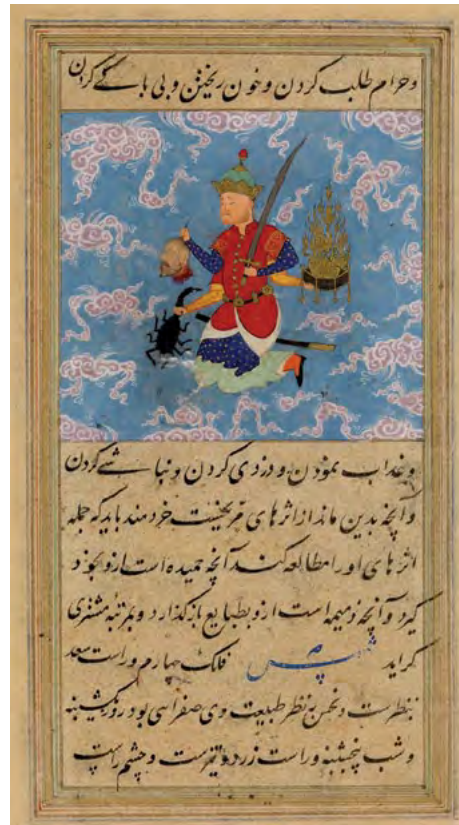 وحرام طلب کردن وخون ریختن وبی باکی کردن
وعذاب نمودن ودزدی کردن ونباشی کردن
وآنچه بدین ماند از اثرهای مریخیست خردمند باید که جمله
اثرهای او را مطالعه کند آنچه حمیده است ازو بخود
گیرد و آنچه ذمیمه است ازو بطبایع بازگذارد و بمرتبه مشتری
گراید شمس فلک چهارم وراست سعد
بنظرست ونحس نظر طبیعت وی بود روز یکشنبه
وشب پنجشنبه وراست زرد وچشم راست